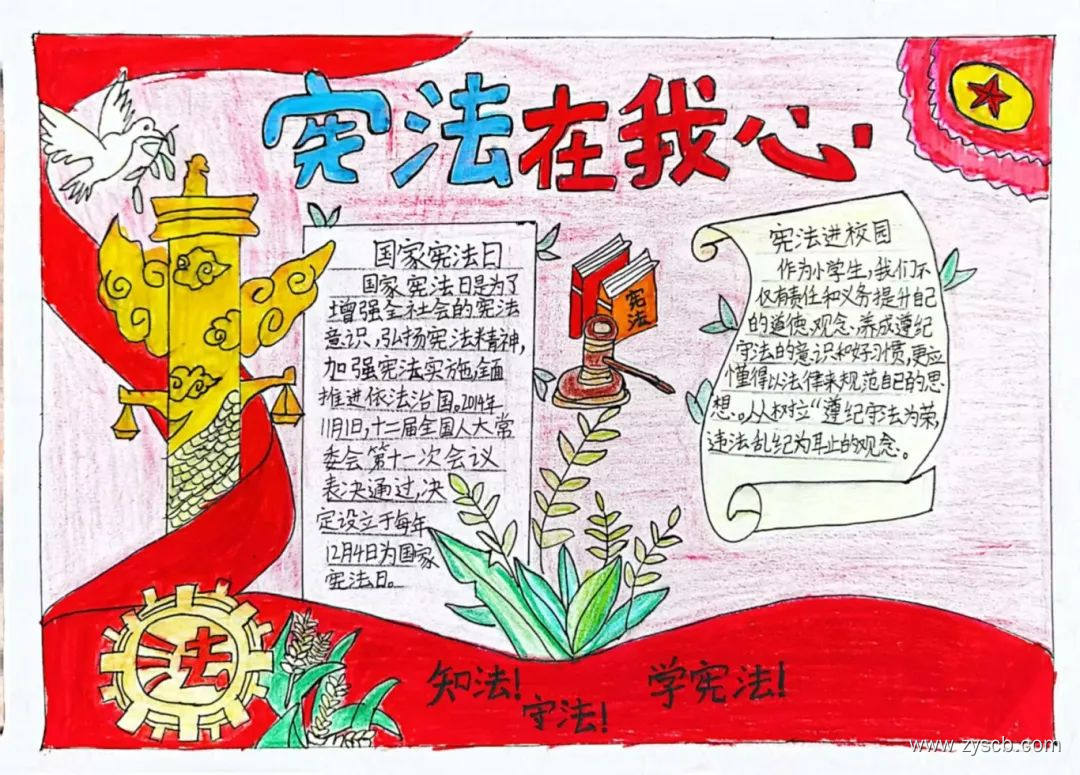 宪法在我心
国家宪法日
国家宪法日是为了
增强全社会的宪法
意识,弘扬宪法精神,
加强宪法实施,全面
推进依法治国。2014年
11月1日,十二届全国人大常
委会第十一次会议
表决通过,决
定设立于每年
12月4日为国家
宪法日。
宪法
宪法进校园
作为小学生,我们不
仅有责任和义务提升自己
的道德、观念、养成遵纪
守法的意识和好习惯,更应
懂得以法律来规范自己的思
想。从树立“遵纪守法为荣,
违法乱纪为耻止的观念。
法
知法!
守法!
学宪法!
www.zyscb.com